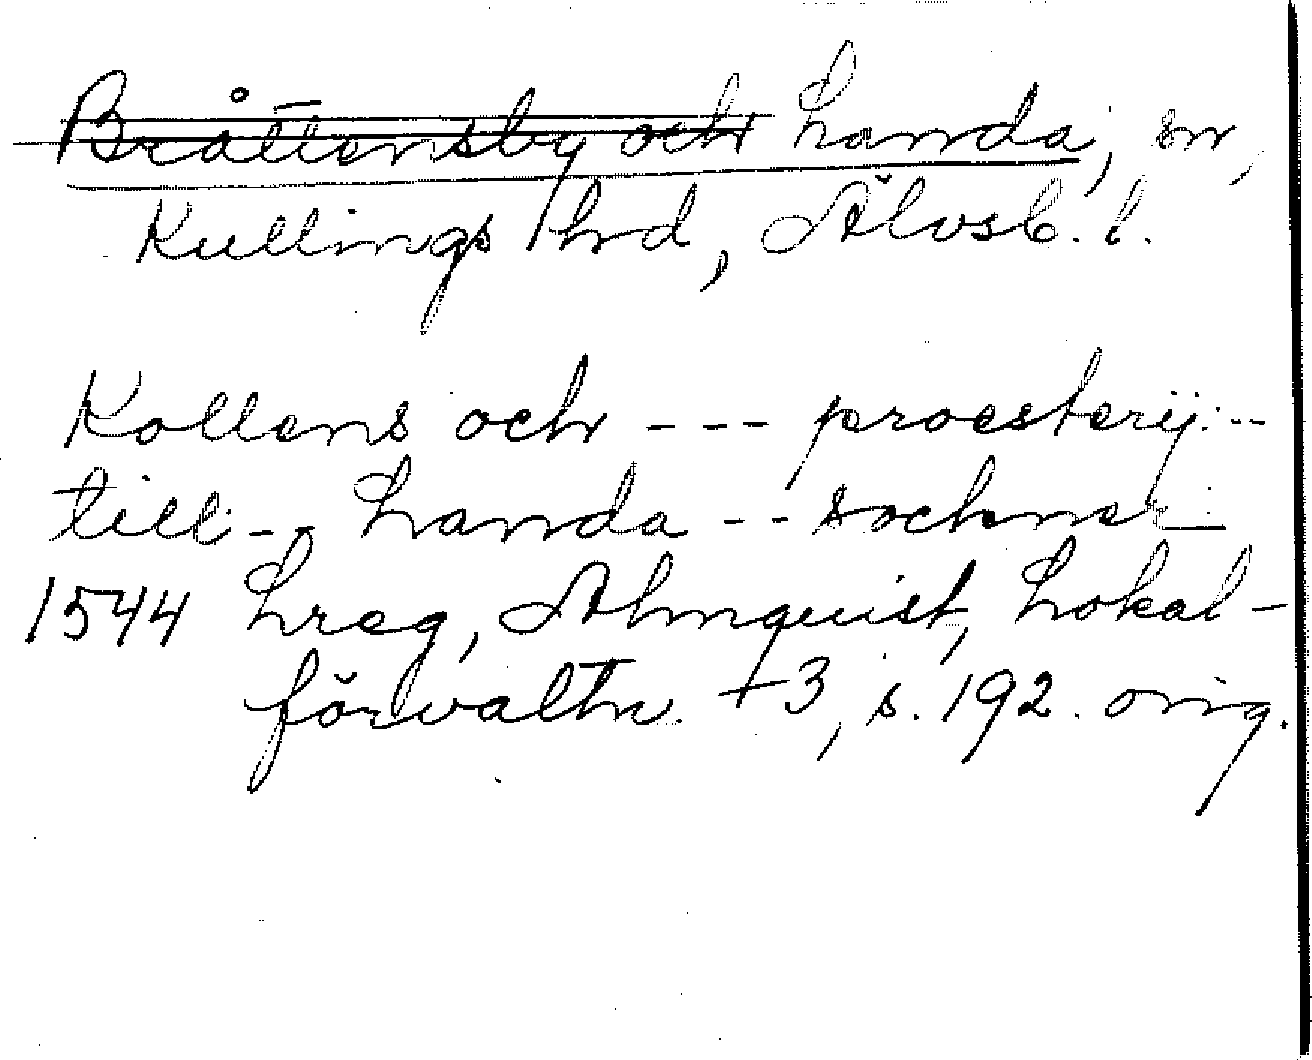 Bråttensby och Landa, sn,
Kullings hrd, Älvsb. l.
Kollens och --- proesterij:--
till:-- Landa -- sochner:--
1544 Lreg, Almquist, Lokal-
förvaltn. +3, s. 192. orig.